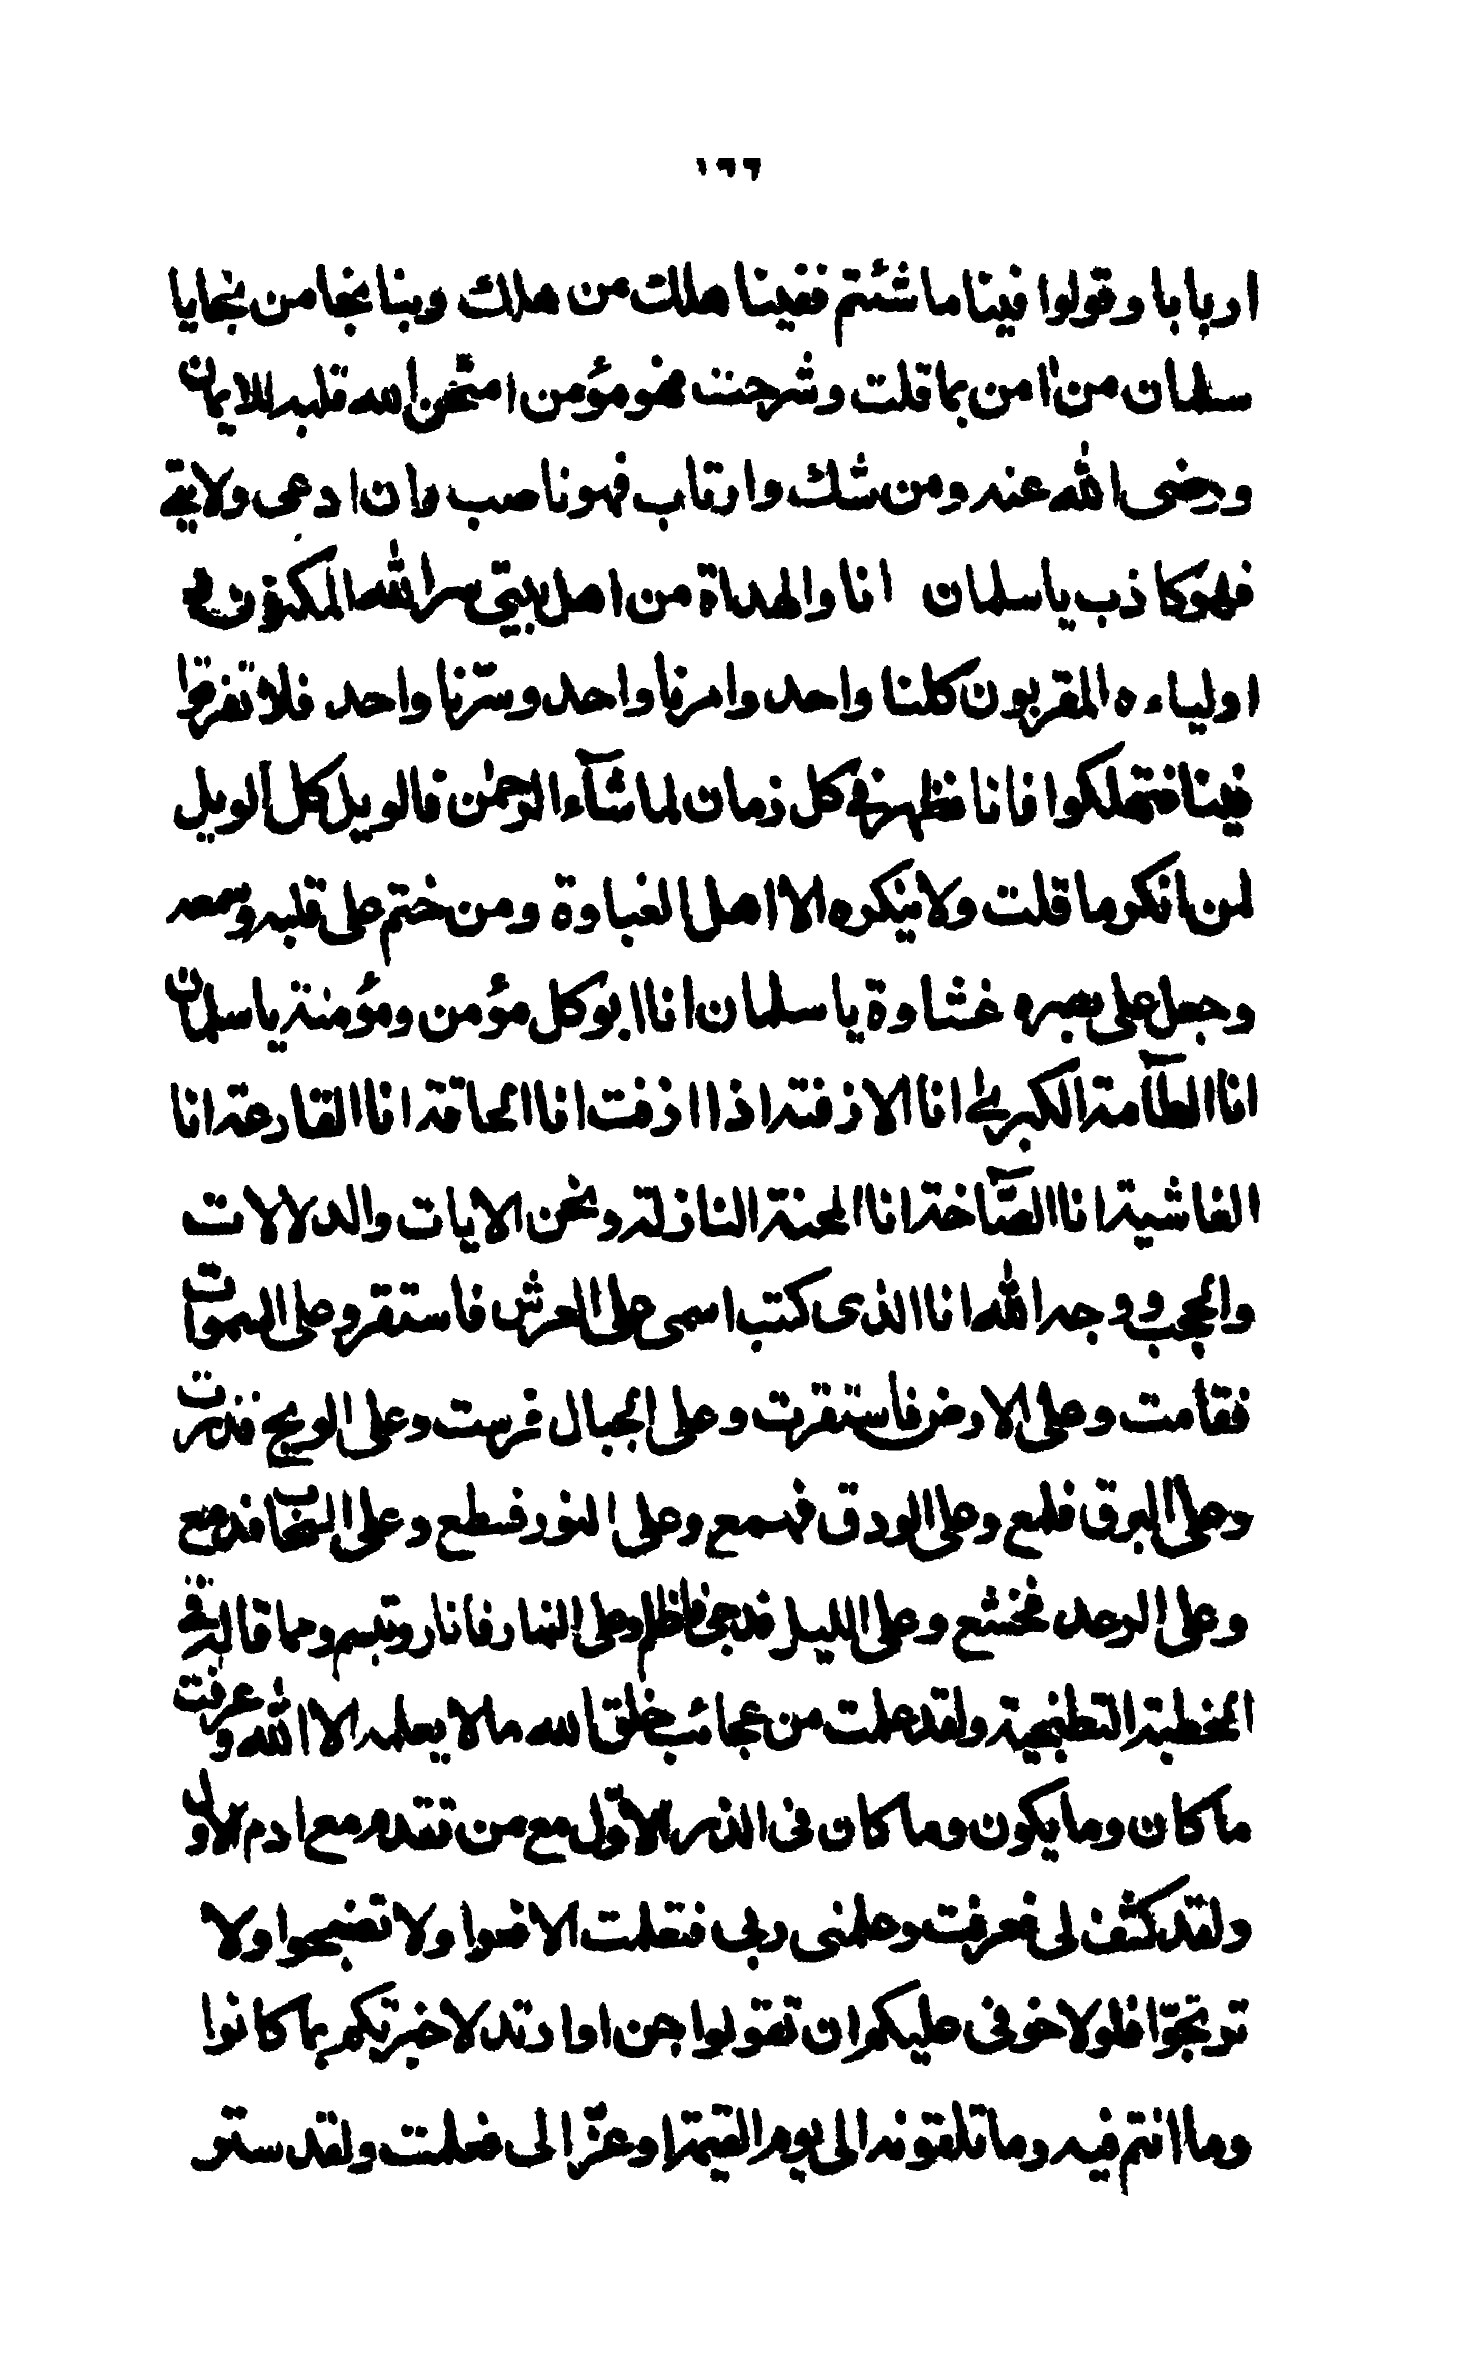 ١٦٦
اربابا وقولوا فينا ما شئتم ففينا هلك من هلك وبنا نجا من نجا يا
سلمان من امن بما قلت وشرحت فهو مؤمن امتحن الله قلبه للايمان
ورضى الله عنه ومن شك وارتاب فهو ناصب وان ادعى ولايتى
فهو كاذب يا سلمان انا والهداة من اهل بيتى سر الله المكنون و
اولياءه المقربون كلنا واحد وامرنا واحد وسرّنا واحد فلا تفرقوا
فينا فتهلكوا فانا نظهر فى كل زمان لما شآء الرحمن فالويل كل الويل
لمن انكر ما قلت ولا ينكره الا اهل الغباوة ومن ختم على قلبه وسمعه
وجعل على بصره غشاوة يا سلمان انا ابو كل مؤمن ومؤمنة يا سلمان
انا الطآمة الكبرى انا الازفة اذا ازفت انا الحاقة انا القارعة انا
الغاشية انا الصّآخة انا المحنة النازلة ونحن الايات والدلالات
والحجب ووجه الله انا الذى كتب اسمى على العرش فاستقر وعلى السموات
فقامت وعلى الارض فاستقرت وعلى الجبال فرست وعلى الريح فذرت
وعلى البرق فلمع وعلى الودق فهمع وعلى النور فسطع وعلى السحاب فدمع
وعلى الرعد فخشع وعلى الليل فدجى واظلم وعلى النهار فانار وتبسم ومما قاله فى
الخطبة التطنجية ولقد علمت من عجائب خلق الله ما لا يعلمه الا الله وعرفت
ما كان وما يكون وما كان فى الذر الاوّل مع من تقدم مع ادم الاول
ولقد كشف لى فعرفت وعلمنى ربى فتعلمت الا فعوا ولا تضجوا ولا
ترتجوّا فلولا خوفى عليكم ان تقولوا جن او ارتد لاخبرتكم بما كانوا
وما انتم فيه وما تلقونه الى يوم القيمة اوعزّ الى فعلمت ولقد ستر